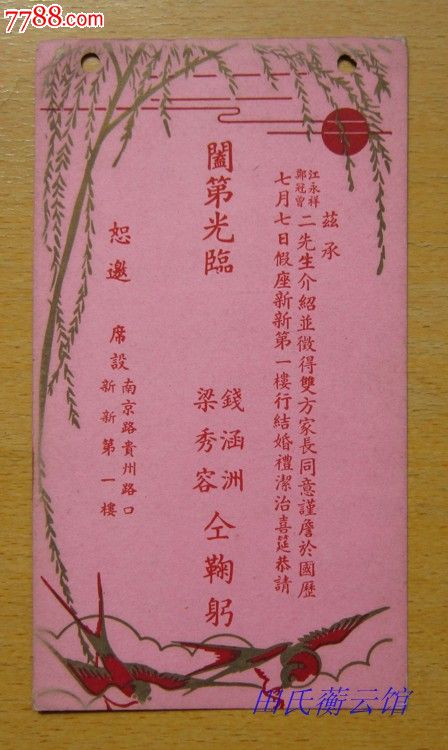 7788.com
茲承
江永祥
鄭冠曾
二先生介紹並徵得雙方家長同意謹詹於國曆
七月七日假座新新第一樓行結婚禮潔治喜筵恭請
闔第光臨
錢涵洲
梁秀容
仝鞠躬
恕邀
席設
南京路貴州路口
新新第一樓
田氏蘅云馆